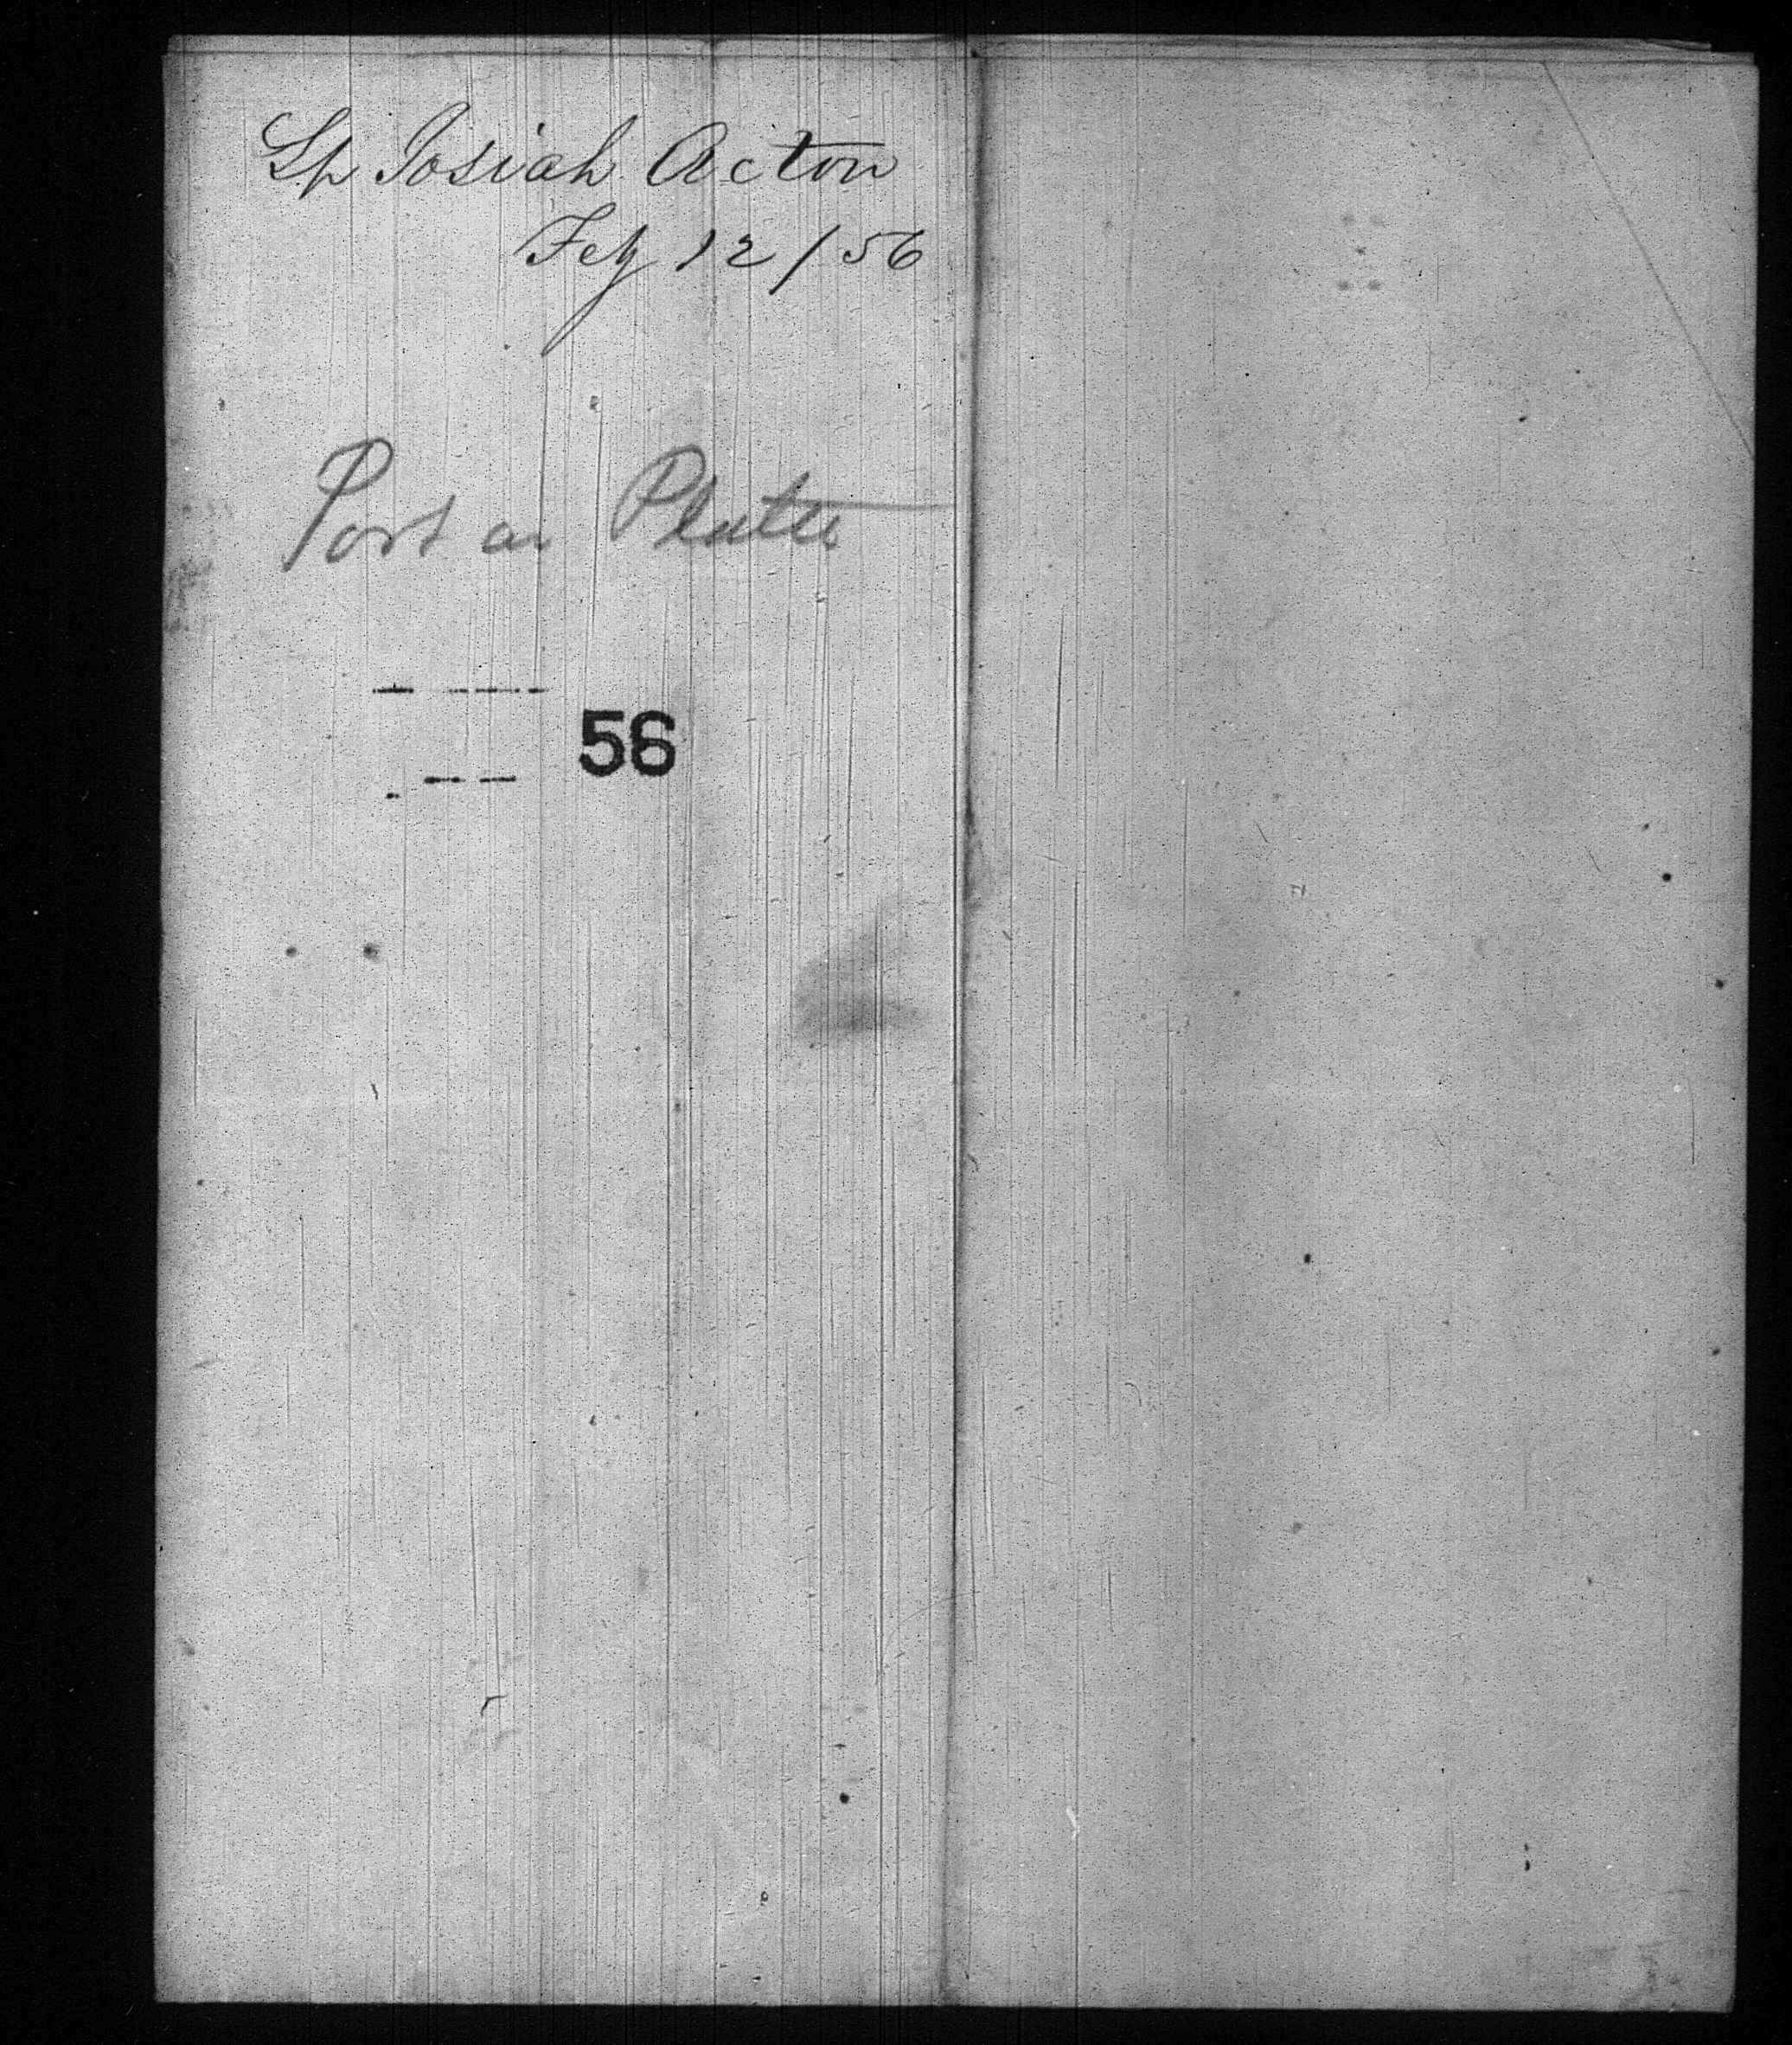 Sp Josiah Acton
Feby 12/56
Port au Platte
56